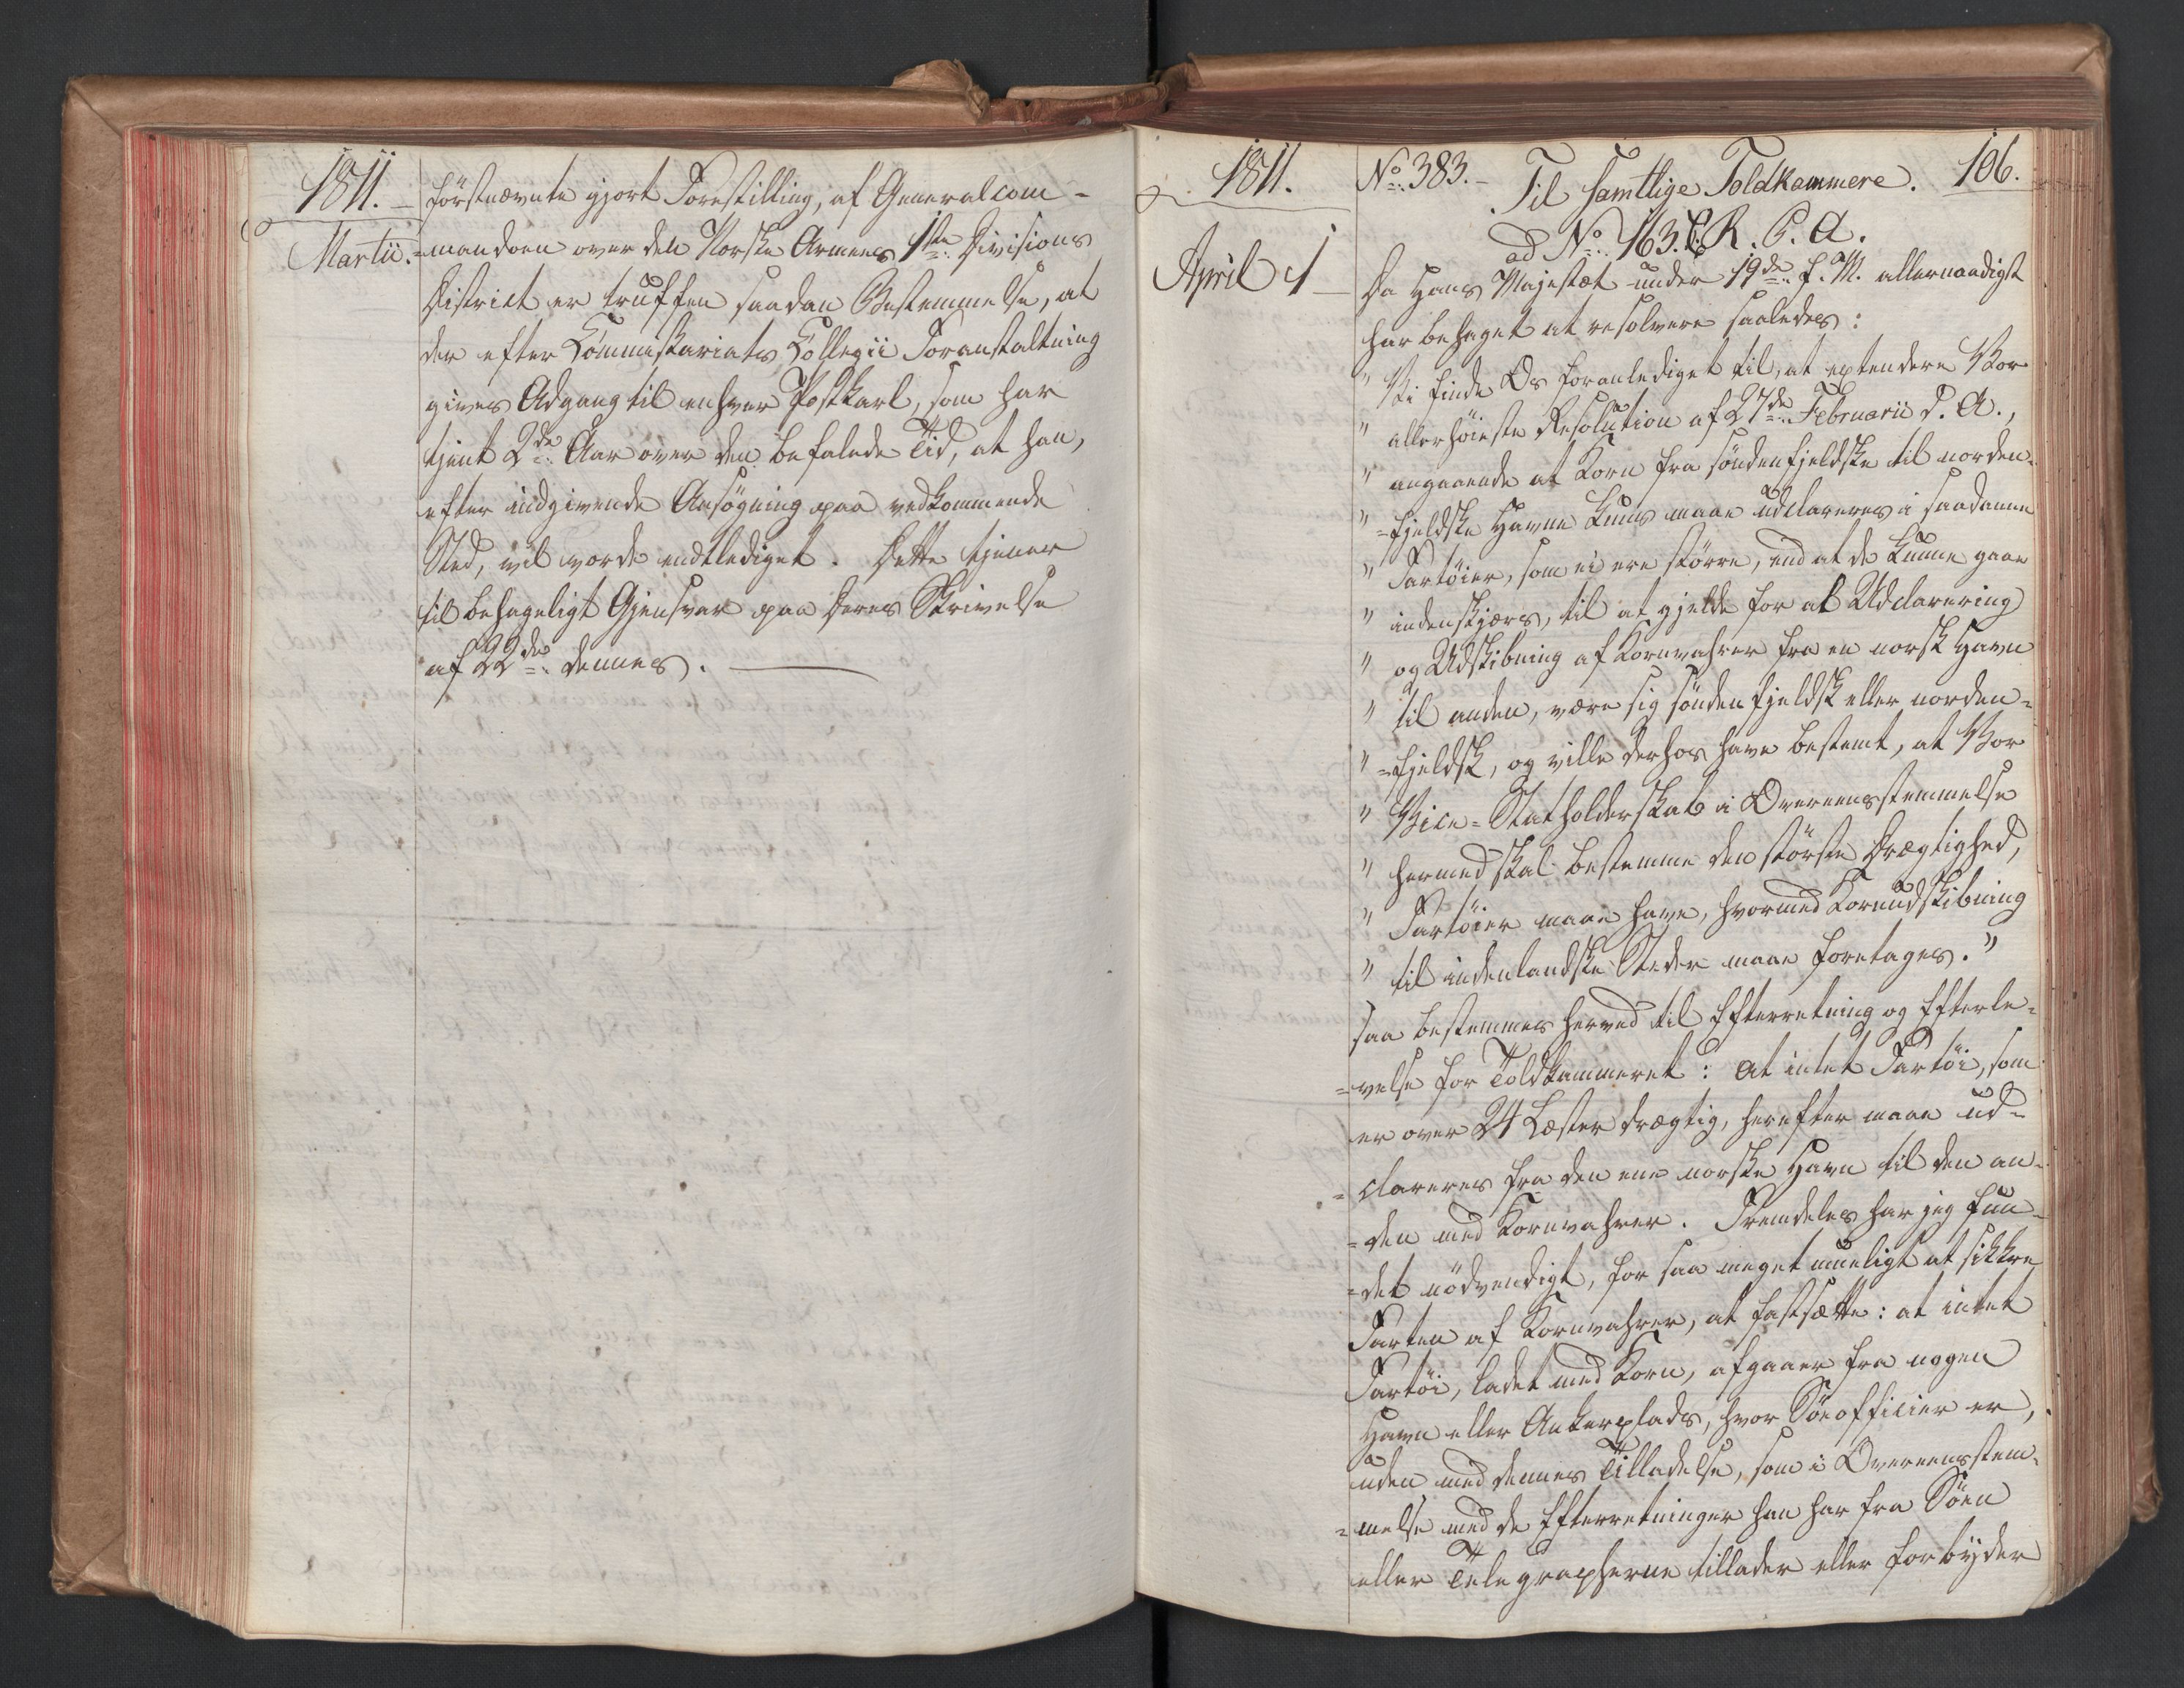 1811.
Martii.
förstnævnte gjort Forestilling, af Generalcom-
=mandoen over den Norske Armees 1ste Divisions
District er truffen saadan Bestemmelse, at
der efter Commissariats Collegii Foranstaltning
gives Adgang til enhver Postkarl, som har
tjent 2de Aar over den befalede Tid, at han,
efter indgivende Ansögning paa vedkommende
Sted, vil vorde entlediget. Dette tjener
til behageligt Gjensvar paa Deres Skrivelse
af 22de dennes.
1811.
April 1
No 383. Til samtlige Toldkammere. 106.
ad No 463. R. P. A.
Da Hans Majestæt under 19de f. M. allernaadigst
har behaget at resolvere saaledes:
" Vi finde Os foranlediget til, at extendere Vor
" allerhöieste Resolution af 27de Februarii d. A.,
" angaaende at Korn fra söndenfjeldske til norden-
" =fjeldske Havne kuns maae udclareres i saadanne
" Fartöier, som ei ere större, end at de kunne gaae
" indenskjærs, til at gjelde for al Udclarering
" og Udskibning af Kornvahrer fra en norsk Havn
" til anden, være sig söndenfjeldsk eller norden=
" =fjeldsk, og ville derhos have bestemt, at Vor
" Vice=Statholderskab i Overeensstemmelse
" hermed skal bestemme den störste Drægtighed,
" Fartöier maae have, hvormed Kornudskibning
" til indenlandske Steder maae foretages."
saa bestemmes herved til Efterretning og Efterle=
=velse for Toldkammeret: at intet Fartöi, som
er over 24 Læster drægtig, herefter maae ud=
=clareres fra den ene norske Havn til den an=
=den med Kornvahrer. Fremdeles har jeg fun=
=det nödvendigt, for saa meget mueligt at sikkre
Farten af Kornvahrer, at fastsætte: at intet
Fartöi, ladet med Korn, afgaaer fra nogen
Havn eller Ankerplads, hvor Söeofficier er,
uden med dennes Tilladelse, som i Overeensstem=
=melse med de Efterretninger han har fra Söen
eller Telegrapherne tillader eller forbyder